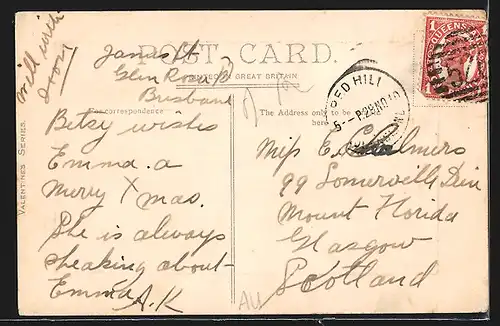 James St
Glen Rosa Rd
Brisbane
POST CARD.
GREAT BRITAIN
For correspondence
The Address only to be
here
Betsy wishes
Emma. a
Merry Xmas.
She is always
speaking about
Emma A.K
Miss E. Chalmers
99 Somerville Drive
Mount Florida
Glasgow
Scotland
VALENTINES SERIES.
RED HILL
QUEENSLAND
1
AU